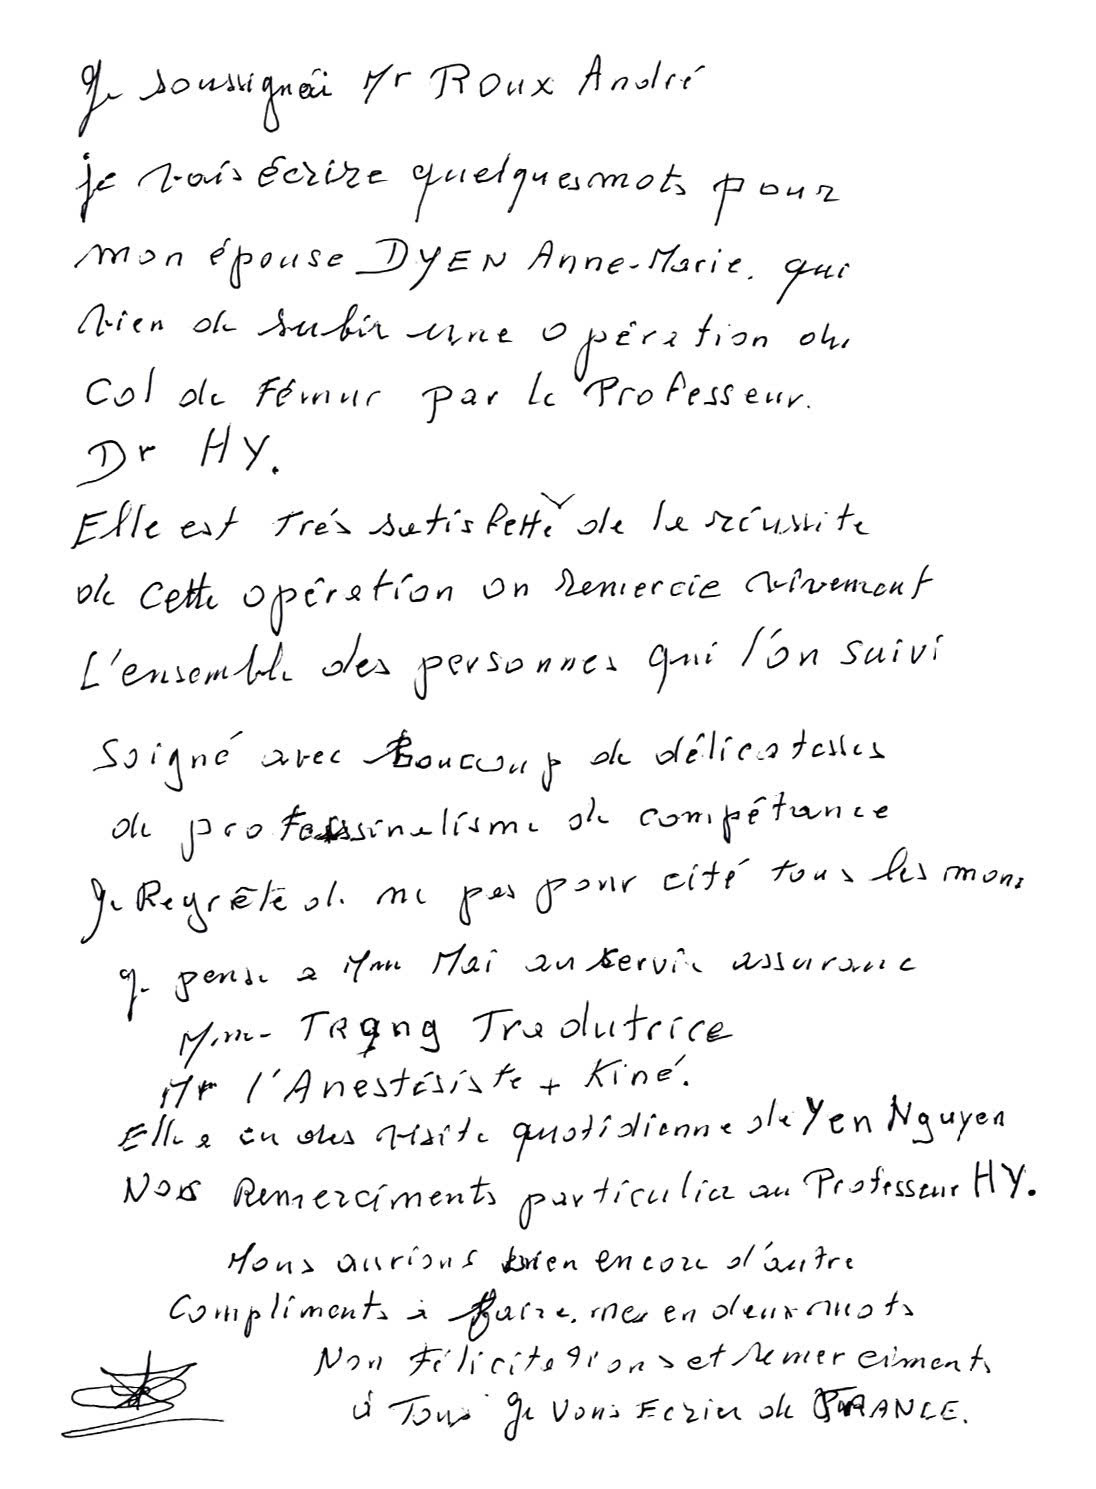 Je soussignéi Mr Roux André
je vais écrire quelques mots pour
mon épouse DYEN Anne-Marie. qui
vien de subir une opération du
Col de Fémur par le Professeur.
Dr HY.
Elle est Trés satisfette de la réussite
de cette opération on remercie vivement
L'ensemble des personnes qui l'on suivi
Soigné avec Boucoup de délicatesses
de professinalisme de compétance
Je Regrête de ne pas pour cité tous les mons
Je pense a Mme Mai au servic assuranc
Mme Trang Tradutrice
Mr l'Anestésiste + Kiné.
Elle a eu des visite quotidienne de Yen Nguyen
Nos Remerciments particulier au Professeur HY.
Nous aurions bien encore d'autre
Compliments à faire. mes en deux mots
Non Félicitations et remerciments
à Tous Je Vous Ecrier de FRANCE.